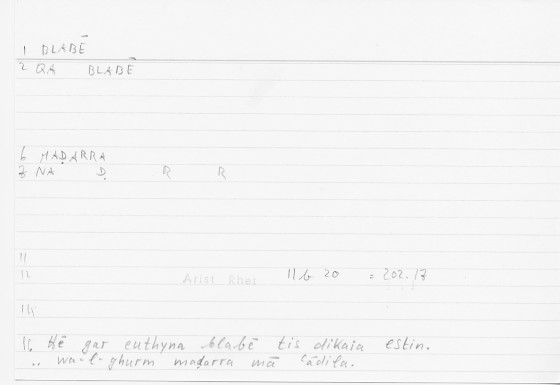 1 BLABĒ
2 QA BLABĒ
6 MAḌARRA
8 NA Ḍ R R
11
12 Arist Rhet 11b 20 = 202.13
14
16 Hē gar euthyna blabē tis dikaia estin.
.. wa-l-ghurm maḍarra mā ʿādila.